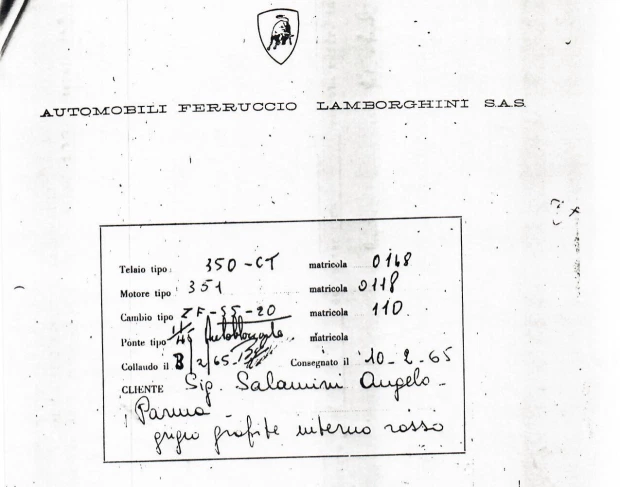 AUTOMOBILI FERRUCCIO LAMBORGHINI S.A.S.
Telaio tipo 350-CT matricola 0148
Motore tipo 351 matricola 0118
Cambio tipo ZF-S5-20 matricola 110
Ponte tipo Autobloccante matricola
Collaudo il 2 65 Consegnato il 10-2-65
CLIENTE Sig. Salamini Angelo -
Parma -
grigio grafite interno rosso